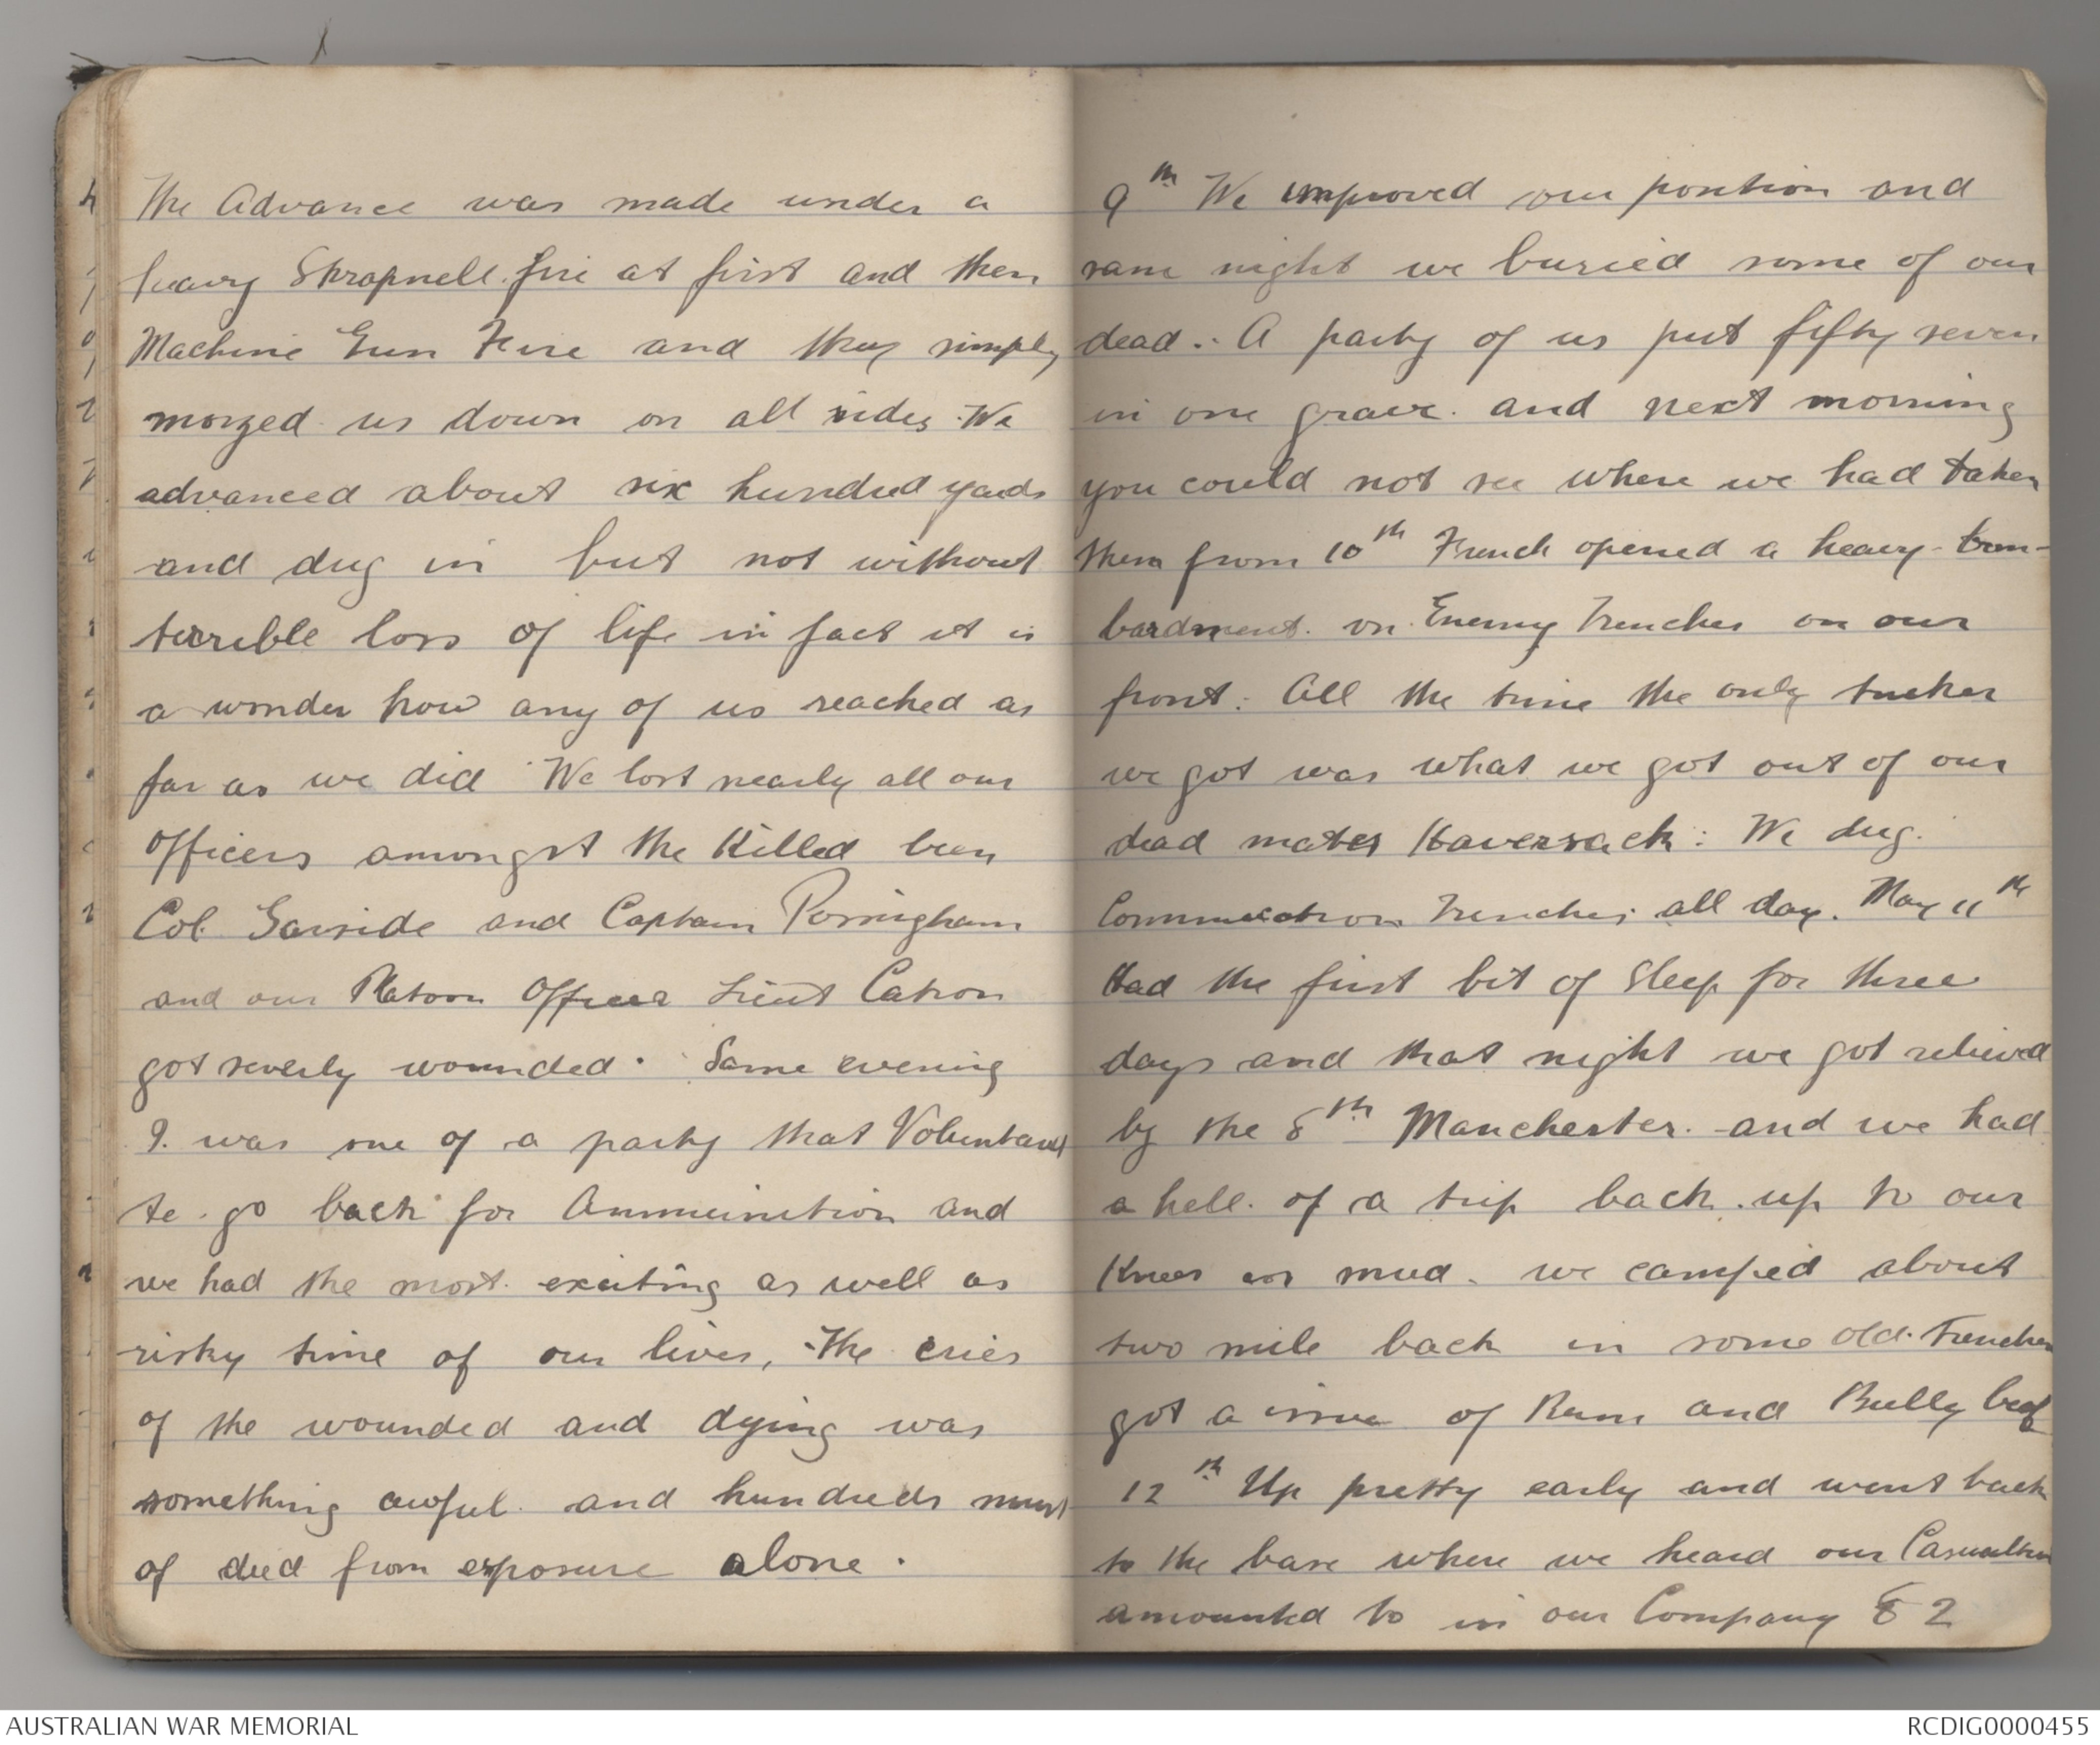 The Advance was made under a
heavy Shrapnell fire at first and then
Machine Gun Fire and they simply
mozed us down on all sides. We
advanced about six hundred yards
and dug in but not without
terrible loss of life in fact it is
a wonder how any of us reached as
far as we did We lost nearly all our
Officers amongst the Killed been
Col. Garside and Captain Possingham
and our Platoon Officer Lieut Catron
got severly wounded. Same evening
I was one of a party that Voluntared
to go back for Ammunition and
we had the most exciting as well as
risky time of our lives, The cries
of the wounded and dying was
something awful. and hundreds must
of died from exposure alone.
9th We improved our position and
same night we buried some of our
dead. A party of us put fifty seven
in one grave. and next morning
you could not see where we had taken
them from 10th French opened a heavy bom-
bardment on Enemy Trenches on our
front. All the time the only tucker
we got was what we got out of our
dead mates Haversack. We dug
Trenches all day. May 11th
Had the first bit of Sleep for three
days and that night we got relieved
by the 8th Manchester. and we had
a hell of a trip back up to our
Knees in mud. we camped about
two mile back in some old Trenches
got a issue of Rum and Bully beef
12th Up pretty early and went back
to the base where we heard our Casualties
amounted to in our Company 82
AUSTRALIAN WAR MEMORIAL
RCDIG0000455